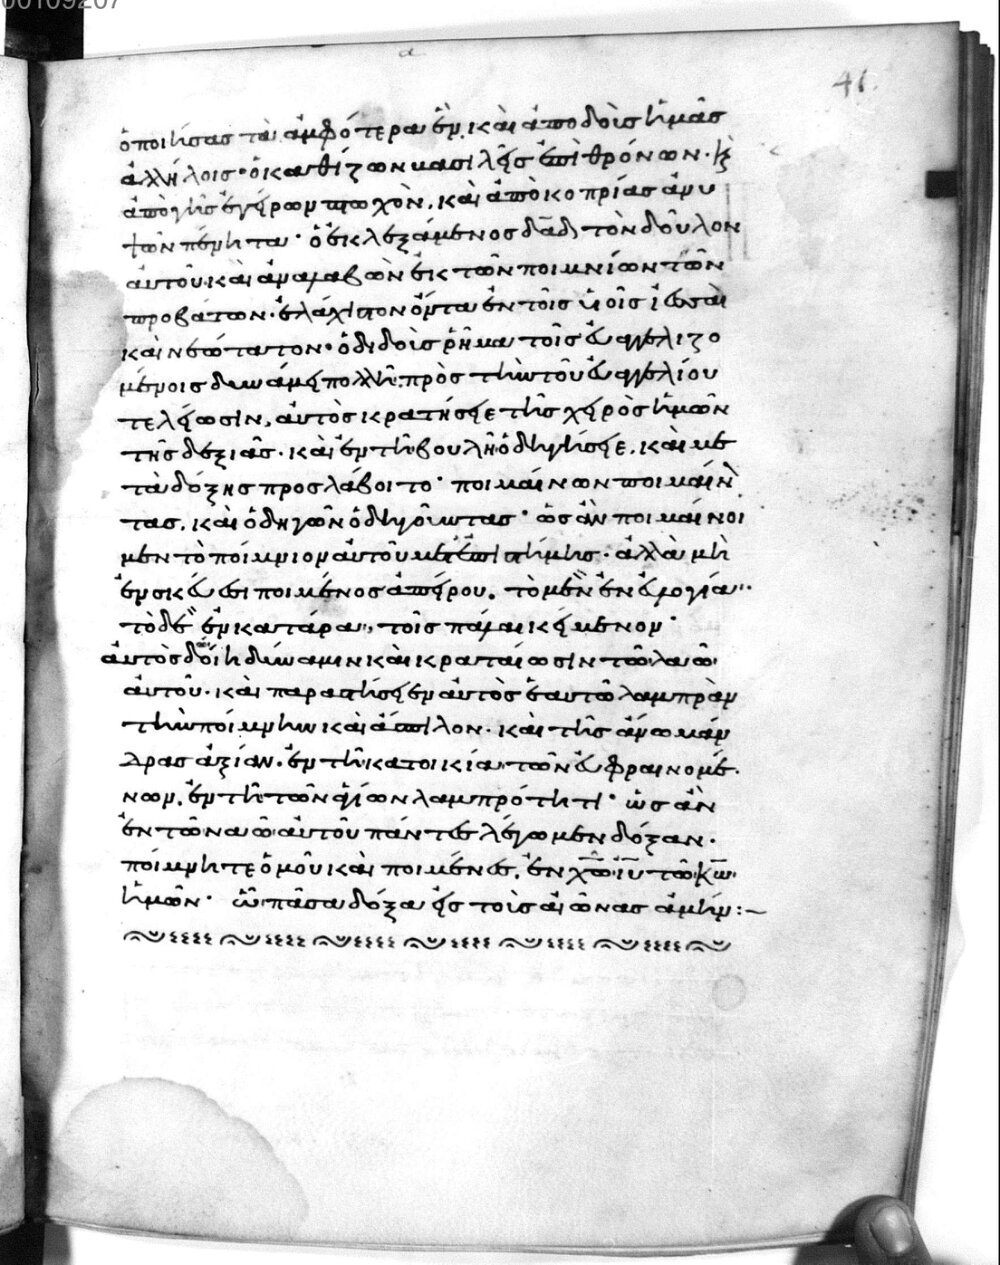 00109207
α
41.
ὁ ποιήσας τὰ ἀμφότερα ἕν, καὶ ἀποδοὺς ἡμᾶς
ἀλλήλοις· ὁ καθίζων βασιλεῖς ἐπὶ θρόνων· κ(αὶ)
ἀπὸ γῆς ἐγείρων πτωχὸν, καὶ ἀπὸ κοπρίας ἀνυ
ψῶν πένητα· ὁ ἐκλεξάμενος δᾱδ τὸν δοῦλον
αὐτοῦ καὶ ἀναλαβὼν ἐκ τῶν ποιμνίων τῶν
προβάτων· ἐλάχιστον ὄντα ἐν τοῖς υἱοῖς ἰεσσαὶ
καὶ νεώτατον· ὁ διδοὺς ῥῆμα τοῖς εὐαγγελιζο
μένοις δυνάμει πολλῆ, πρὸς τὴν τοῦ εὐαγγελίου
τελείωσιν, αὐτὸς κρατήσειε τῆς χειρὸς ἡμῶν
τῆς δεξιᾶς· καὶ ἐν τῆ βουλῆ ὁδηγήσειε, καὶ με
τὰ δόξης προσλάβοιτο· ποιμαίνων ποιμαίν
τας, καὶ ὁδηγῶν ὁδηγοῦντας· ὡς ἂν ποιμαίνοι
μεν τὸ ποίμνιον αὐτοῦ μετ ἐπιστήμης· ἀλλὰ μὴ
ἐν σκεύει ποιμένος ἀπείρου, τὸ μὲν ἐν εὐλογία
τὸ δὲ ἐν κατάρα, τοῖς πάλαι κείμενον·
αὐτὸς δοίη δύναμιν καὶ κραταίωσιν τῶ λαῶ
αὐτοῦ· καὶ παραστήσειεν αὐτὸς ἑαυτῶ λαμπρὰν
τὴν ποίμνην καὶ ἄσπιλον· καὶ τῆς ἄνω μάν
δρας ἀξίαν· ἐν τῆ κατοικία τῶν εὐφραινομέ
νων, ἐν τῆ τῶν ἁγίων λαμπρότητι· ὡς ἂν
ἐν τῶ ναῶ αὐτοῦ πάντες λέγωμεν δόξαν·
ποίμνη τε ὁμοῦ καὶ ποιμένες, ἐν χ̅ω̅ ι̅υ̅ τῶ κ̅ω̅
ἡμῶν· ὧ πᾶσα δόξα εἰς τοὺς αἰῶνας ἀμήν:~